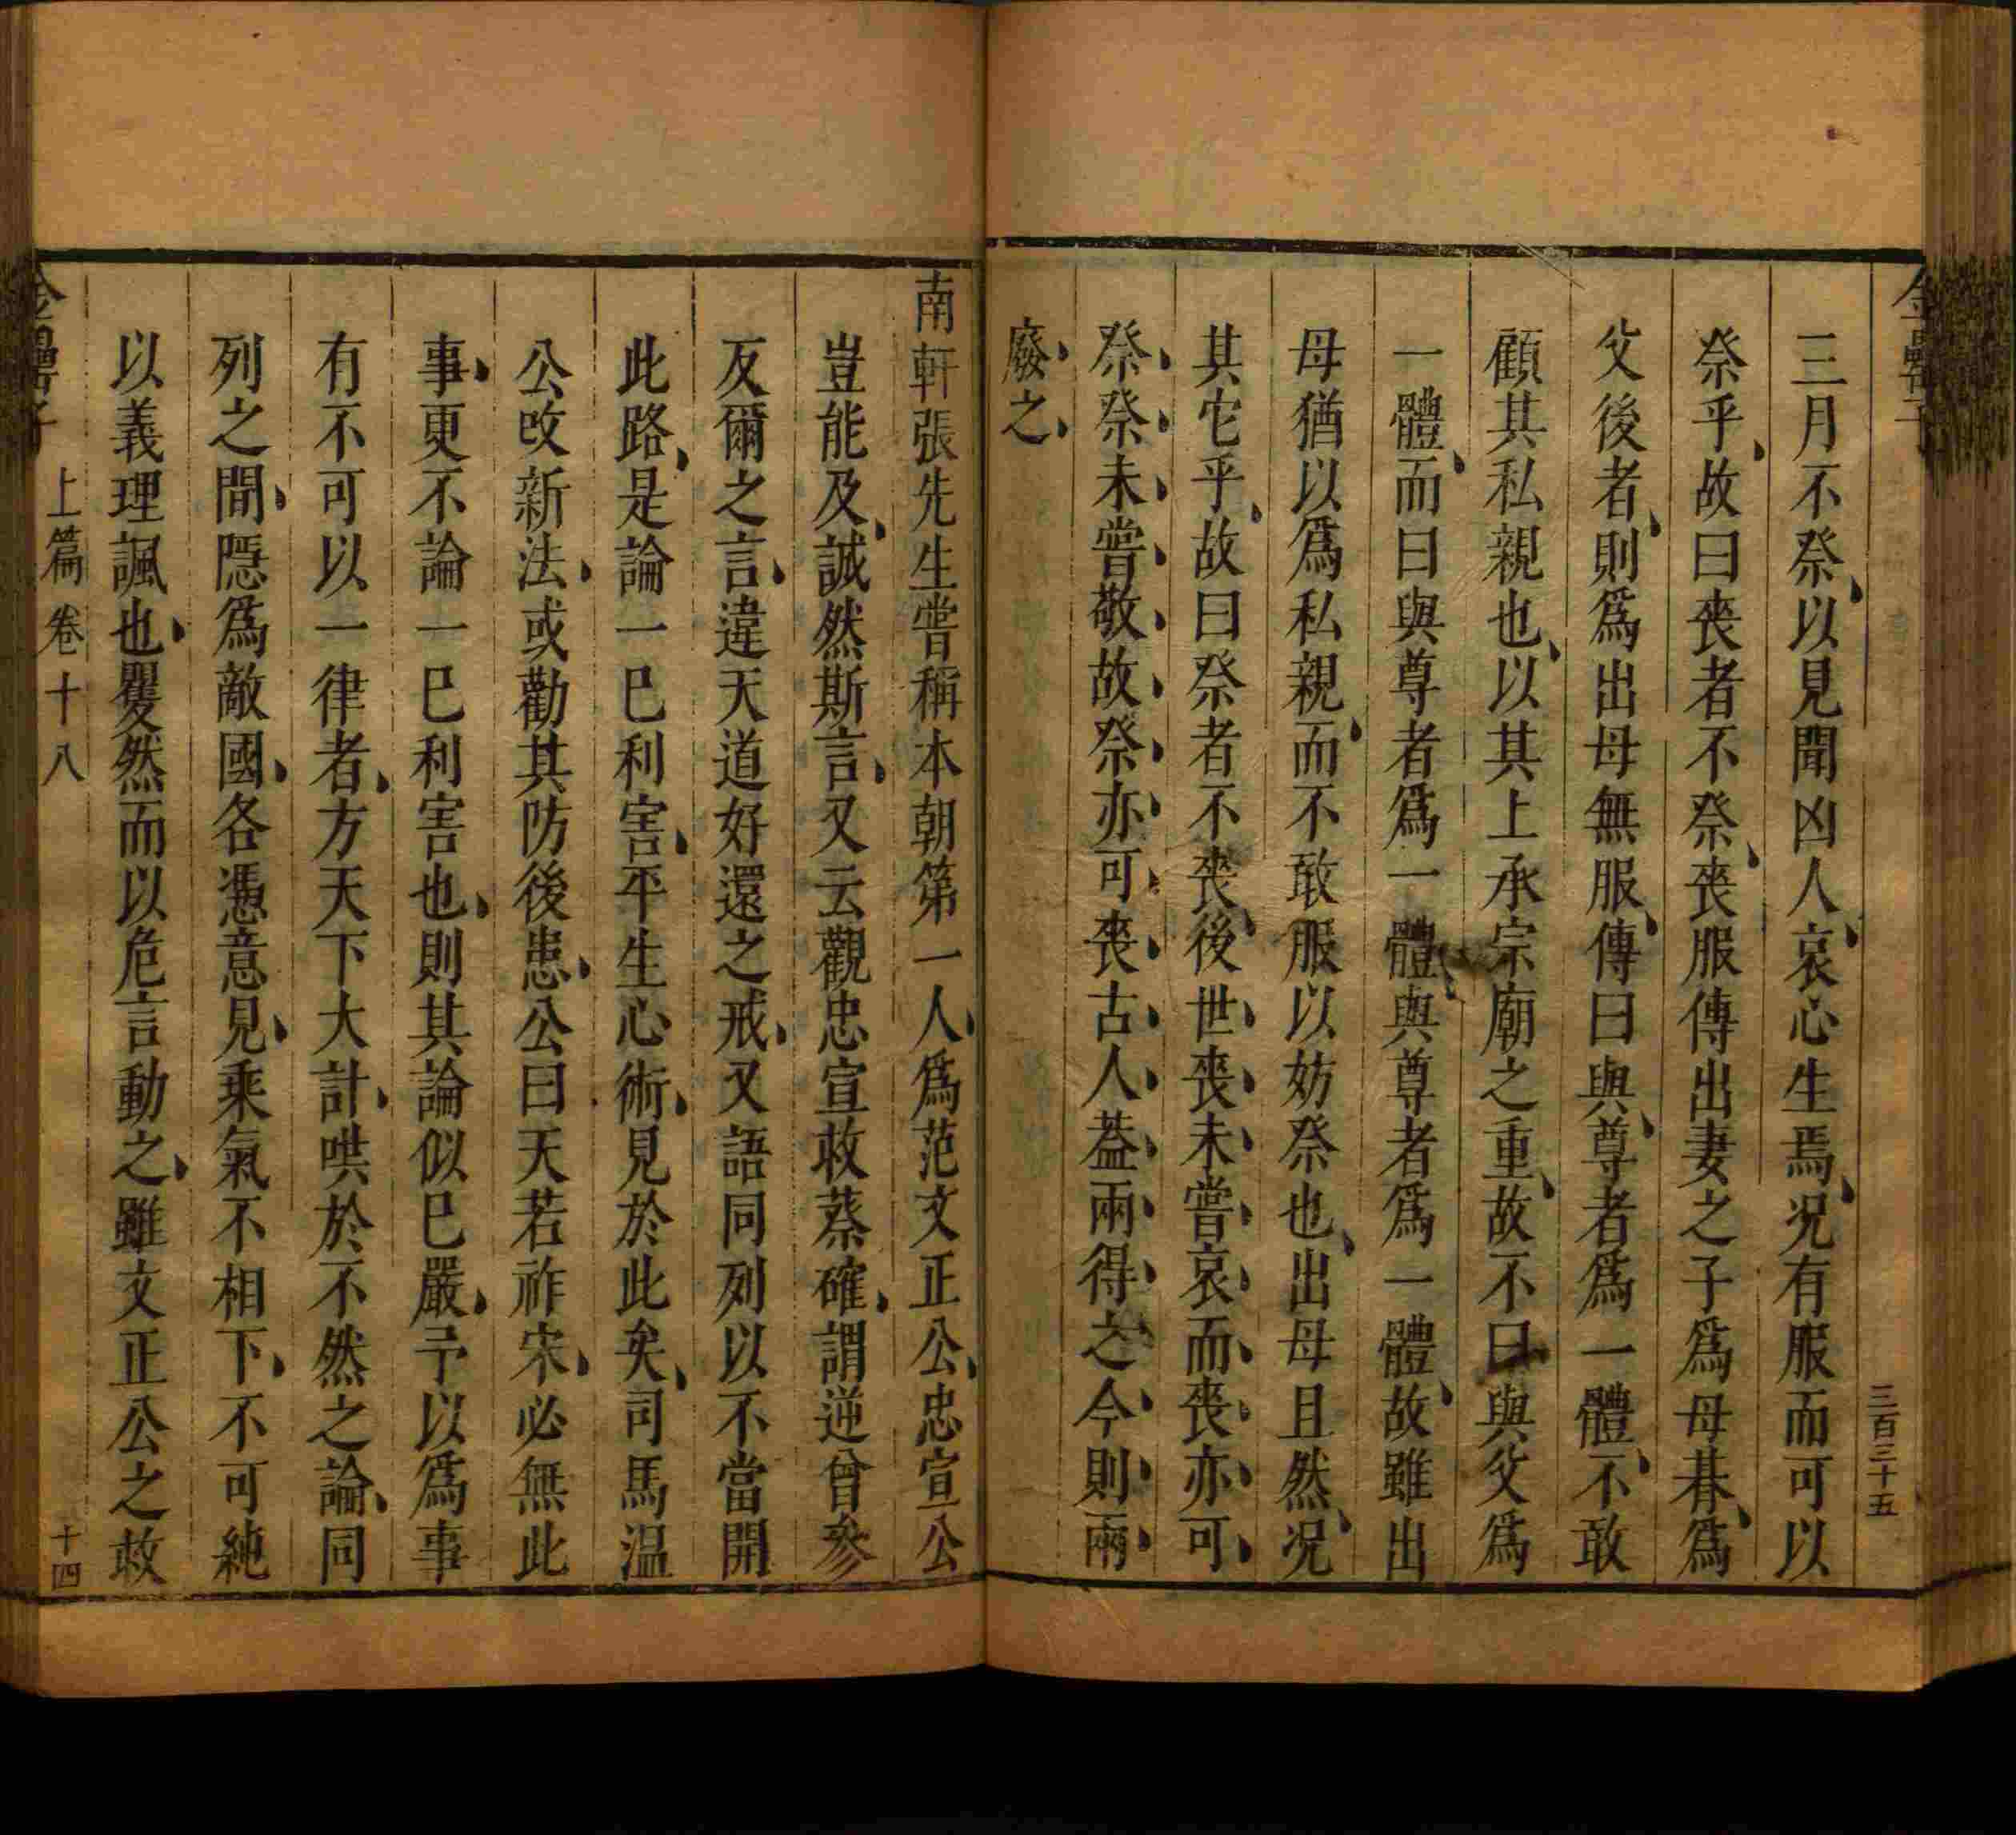 三百三十五
三月不祭以見聞凶人哀心生焉况有服而可以
祭乎故曰喪者不祭喪服傳出妻之子爲母朞爲
父後者則爲出母無服傳曰與尊者爲一體不敢
顧其私親也以其上承宗廟之重故不曰與父爲
一體而曰與尊者爲一體與尊者爲一體故雖出
母猶以爲私親而不敢服以妨祭也出母且然况
其它乎故曰祭者不喪後世喪未嘗哀而喪亦可
祭祭未嘗敬故祭亦可喪古人葢兩得之今則兩
廢之
南軒張先生嘗稱本朝第一人爲范文正公忠宣公
豈能及誠然斯言又云觀忠宣救蔡確謂逆曾參
反爾之言違天道好還之戒又語同列以不當開
此路是論一巳利害平生心術見於此矣司馬温
公改新法或勸其防後患公曰天若祚宋必無此
事更不論一巳利害也則其論似巳嚴予以爲事
有不可以一律者方天下大計哄於不然之論同
列之間隱爲敵國各憑意見乘氣不相下不可純
以義理諷也矍然而以危言動之雖文正公之救
金罍子 上篇卷十八 十四